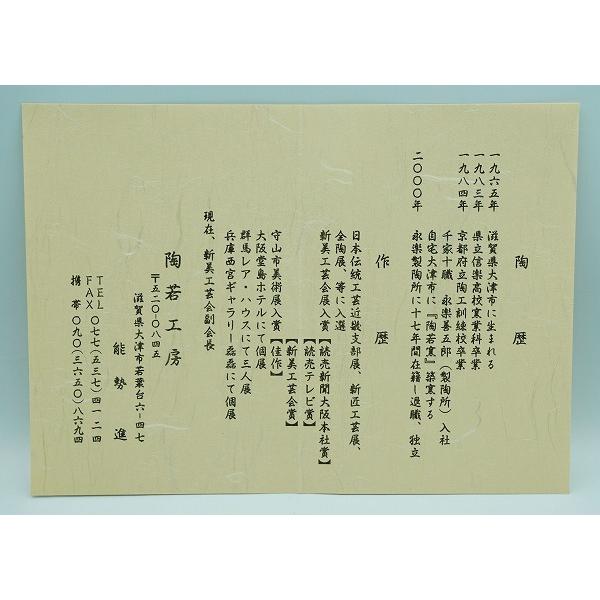 陶歴
一九六五年 滋賀県大津市に生まれる
一九八三年 県立信楽高校窯業科卒業
一九八四年 京都府立陶工訓練校卒業
千家十職 永楽善五郎（製陶所）入社
自宅大津市に『陶若窯』築窯する
二〇〇〇年 永楽製陶所に十七年間在籍し退職、独立
作歴
日本伝統工芸近畿支部展、新匠工芸展、
金陶展、等に入選
新美工芸会展入賞【読売新聞大阪本社賞】
【読売テレビ賞】
【新美工芸会賞】
守山市美術展入賞【佳作】
大阪堂島ホテルにて個展
群馬レア・ハウスにて三人展
兵庫西宮ギャラリー磊磊にて個展
現在、新美工芸会副会長
陶若工房
〒五二〇-〇八四五
滋賀県大津市若葉台六-四七
能勢進
TEL 〇七七(五三七)四一二四
FAX
携帯 〇九〇(三六五〇)八六九四